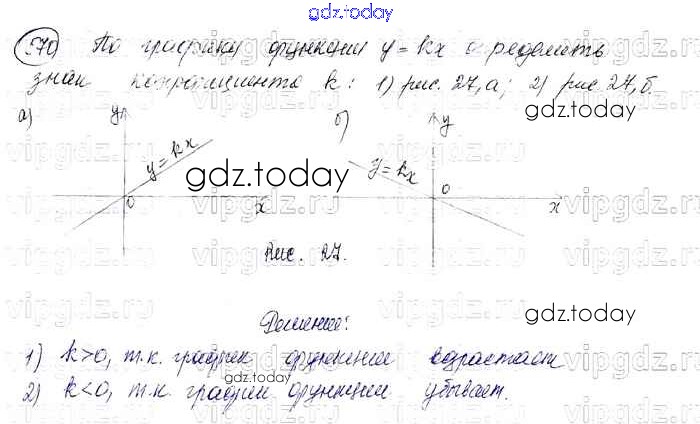 gdz.today
570) По графику функции y = kx определить
знак коэффициента k: 1) рис. 27, а; 2) рис. 27, б.
gdz.today
а) y б) y
y = kx y = kx
gdz.today
0 x 0 x
Рис. 27.
gdz.today
Решение:
1) k>0, т.к. график функции возрастает
2) k<0, т.к. график функции убывает.
gdz.today